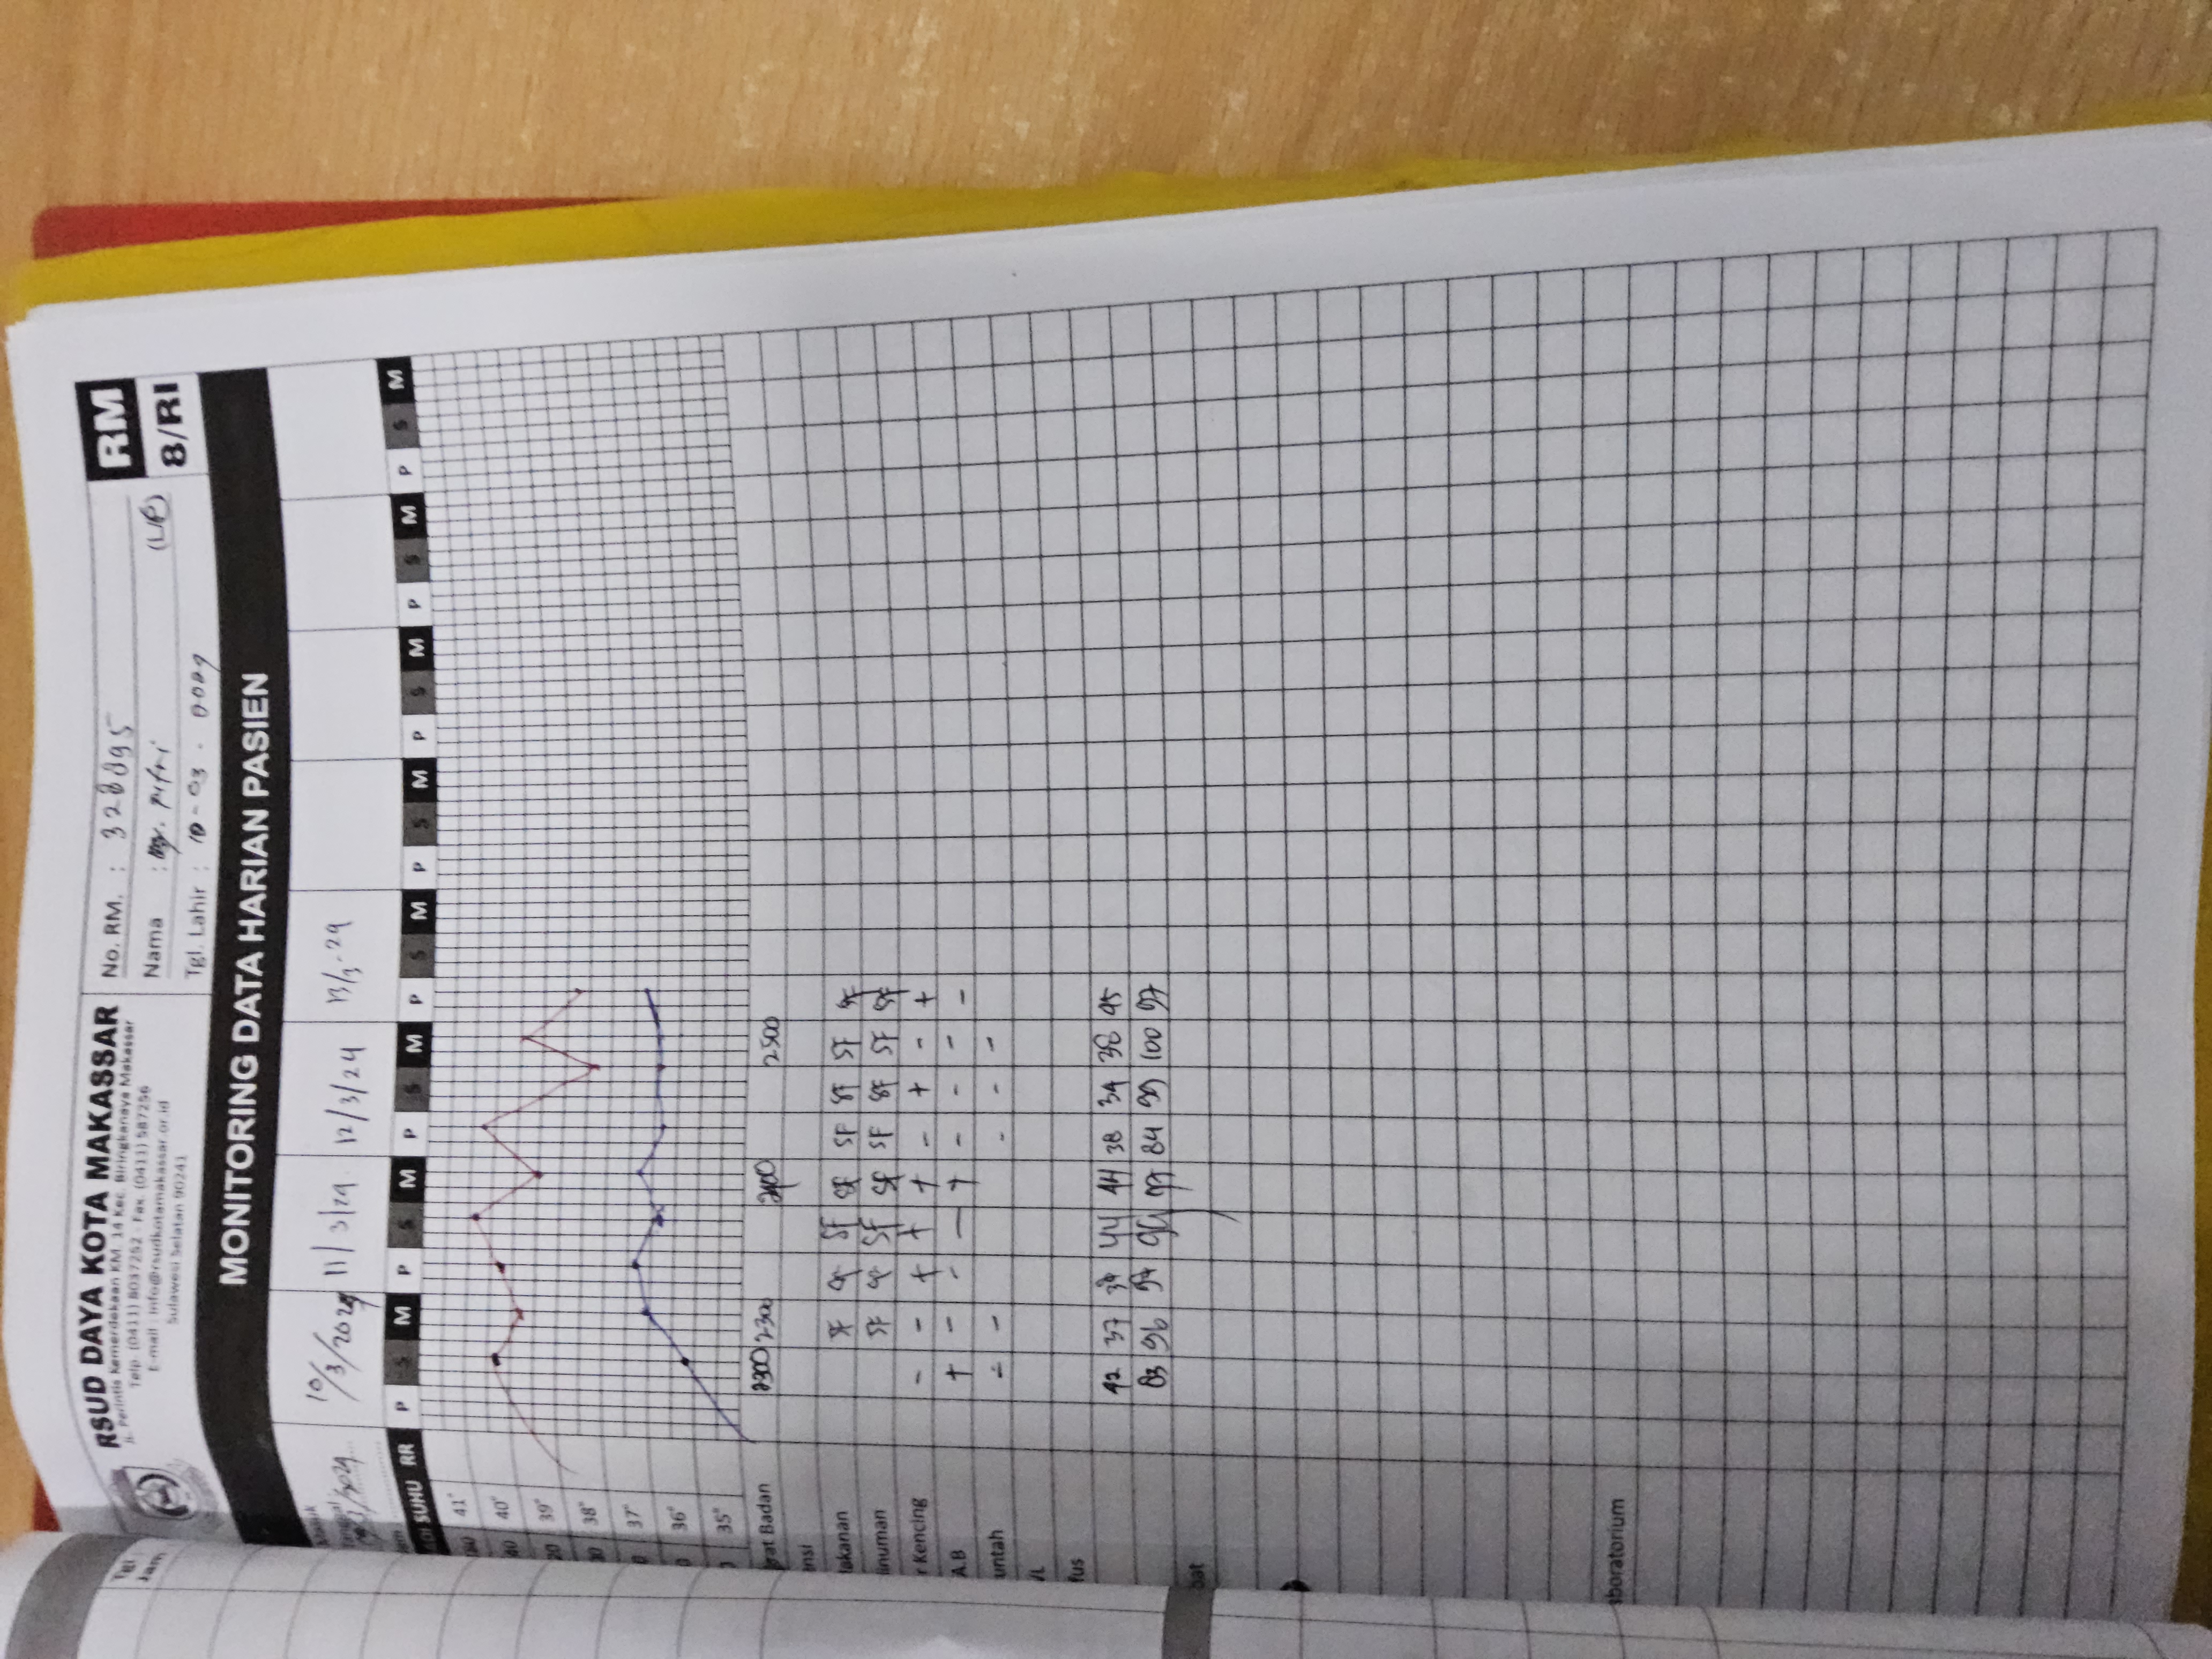 RSUD DAYA KOTA MAKASSAR
Jl. Perintis Kemerdekaan KM. 14 Kec. Biringkanaya Makassar
Telp. (0411) 8037252 - Fax. (0411) 587256
E-mail : info@rsudkotamakassar.or.id
Sulawesi Selatan 90241
No. RM. : 328895
Nama :
Tgl. Lahir : 10 - 03 -
RM
8/RI
MONITORING DATA HARIAN PASIEN
10/3/2024 11/3/24 12/3/24 13/3-24
SUHU RR P S M P S M P S M P S M P S M P S M P S M P S M
41°
40°
39°
38°
37°
36°
35°
rat Badan 2300 2300 2400 2500
ansi
akanan SF SF SF SF SF SF SF
inuman SF SF SF SF SF SF SF
r Kencing - - + + + - + - +
A.B + - - - + - - - -
untah - - - - -
/L
fus
42 37 38 44 44 38 34 36 45
83 96 97 96 97 84 99 100 97
bat
aboratorium